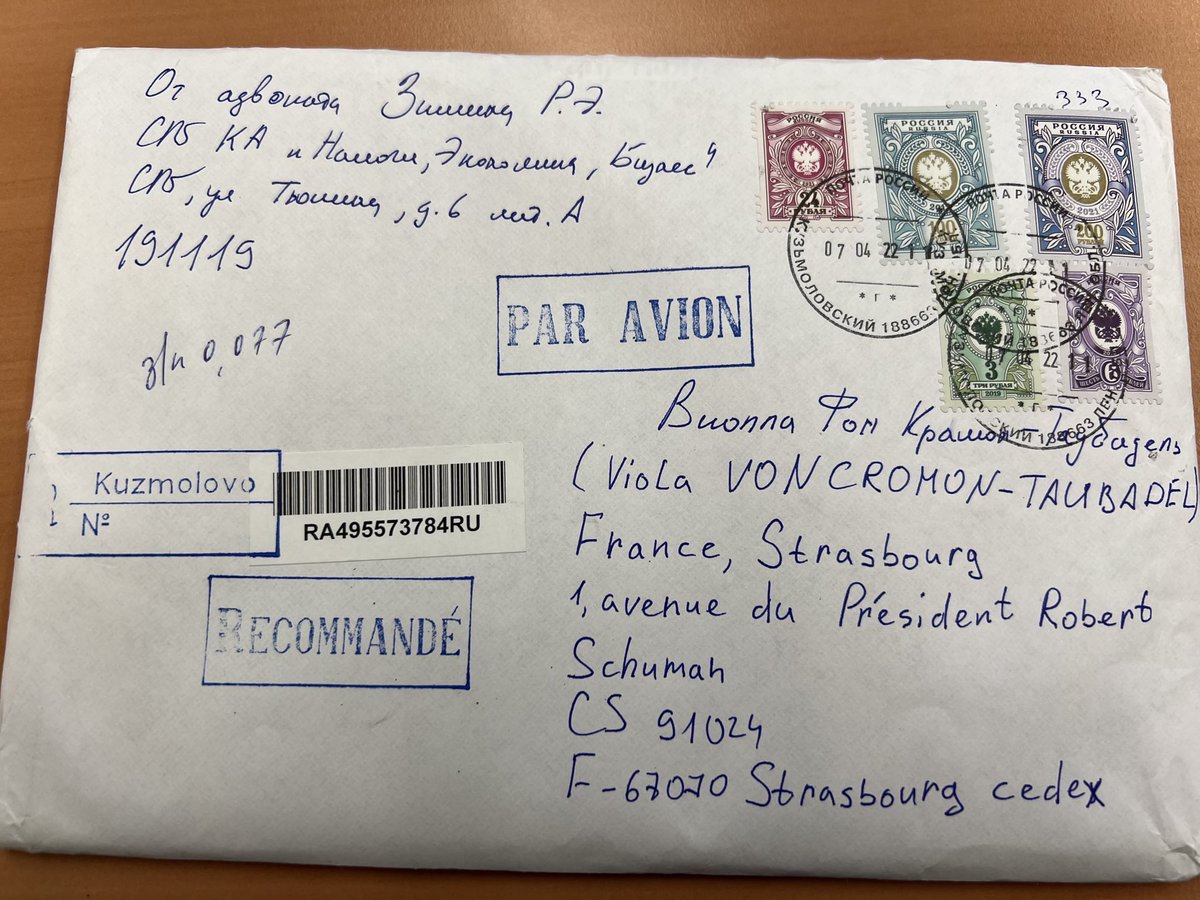 От адвоката Зимина Р.Э.
СПб КА "Налоги, Экономика, Бизнес"
СПб, ул Тюшина, д.6 лит. А
191119
з/п 0,077
333
РОССИЯ
24
РУБЛЯ
РОССИЯ
RUSSIA
100
РОССИЯ
RUSSIA
2021
200
РУБЛЕЙ
3
ТРИ РУБЛЯ
2019
6
ШЕСТЬ РУБЛЕЙ
ПОЧТА РОССИИ
07 04 22 11
* Г *
КУЗЬМОЛОВСКИЙ 188663
ПОЧТА РОССИИ
07 04 22 11
ПОЧТА РОССИИ
07 04 22 11
* Г *
КУЗЬМОЛОВСКИЙ 188663 ЛЕН
PAR AVION
Виолла Фон Крамон-Таубадель
(Viola VON CROMON-TAUBADEL)
France, Strasbourg
1, avenue du Président Robert
Schuman
CS 91024
F-67070 Strasbourg cedex
Kuzmolovo
Nº
RA495573784RU
RECOMMANDÉ